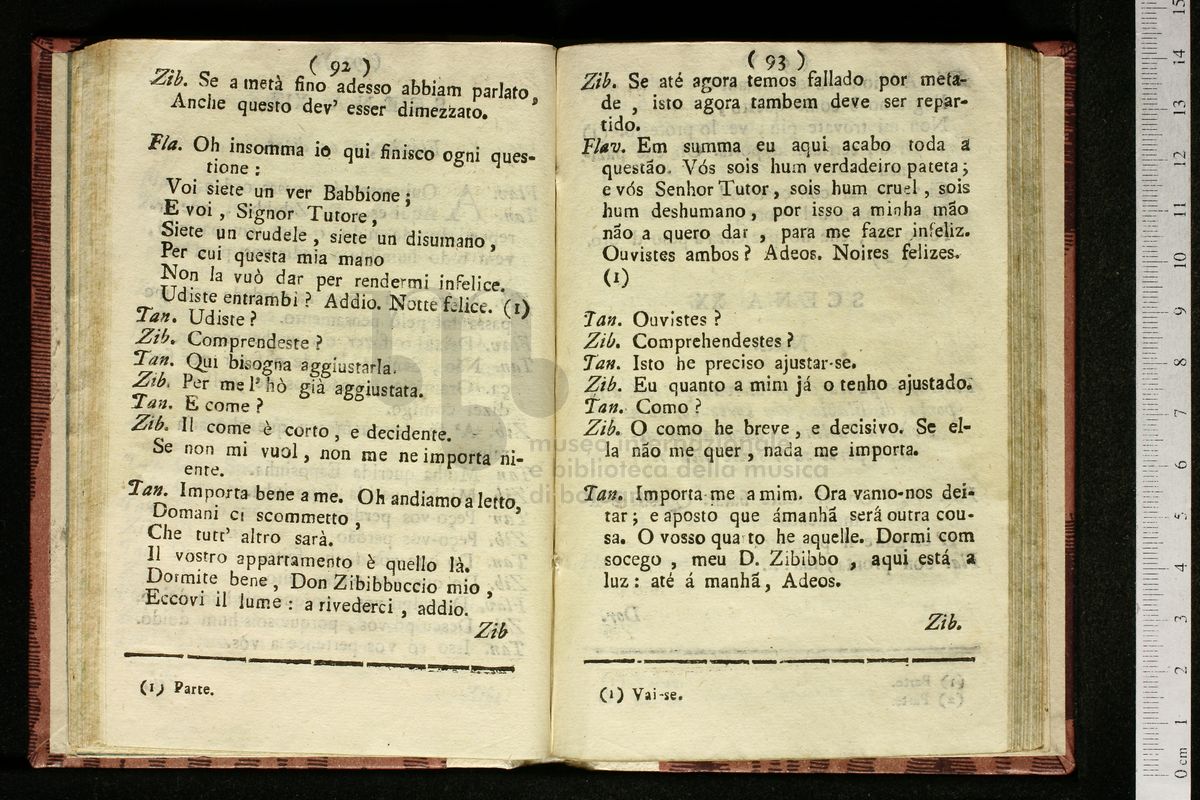 ( 92 )
Zib. Se a metà fino adesso abbiam parlato,
Anche questo dev' esser dimezzato.
Fla. Oh insomma io qui finisco ogni ques-
tione :
Voi siete un ver Babbione ;
E voi , Signor Tutore ,
Siete un crudele , siete un disumano ,
Per cui questa mia mano
Non la vuò dar per rendermi infelice.
Udiste entrambi ? Addio. Notte felice. (1)
Tan. Udiste ?
Zib. Comprendeste ?
Tan. Qui bisogna aggiustarla.
Zib. Per me l' hò già aggiustata.
Tan. E come ?
Zib. Il come è corto , e decidente.
Se non mi vuol , non me ne importa ni-
ente.
Tan. Importa bene a me. Oh andiamo a letto,
Domani ci scommetto ,
Che tutt' altro sarà.
Il vostro appartamento è quello là.
Dormite bene , Don Zibibbuccio mio ,
Eccovi il lume : a rivederci , addio.
Zib
(1) Parte.
( 93 )
Zib. Se até agora temos fallado por meta-
de , isto agora tambem deve ser repar-
tido.
Flav. Em summa eu aqui acabo toda a
questão. Vós sois hum verdadeiro pateta ;
e vós Senhor Tutor , sois hum cruel , sois
hum deshumano , por isso a minha mão
não a quero dar , para me fazer infeliz.
Ouvistes ambos ? Adeos. Noites felizes.
(1)
Tan. Ouvistes ?
Zib. Comprehendestes ?
Tan. Isto he preciso ajustar-se.
Zib. Eu quanto a mim já o tenho ajustado.
Tan. Como ?
Zib. O como he breve , e decisivo. Se el-
la não me quer , nada me importa.
Tan. Importa-me a mim. Ora vamo-nos dei-
tar ; e aposto que ámanhã será outra cou-
sa. O vosso quarto he aquelle. Dormi com
socego , meu D. Zibibbo , aqui está a
luz : até á manhã , Adeos.
Zib.
(1) Vai-se.
museo internazionale
e biblioteca della musica
di bologna
0 cm 1 2 3 4 5 6 7 8 9 10 11 12 13 14 15